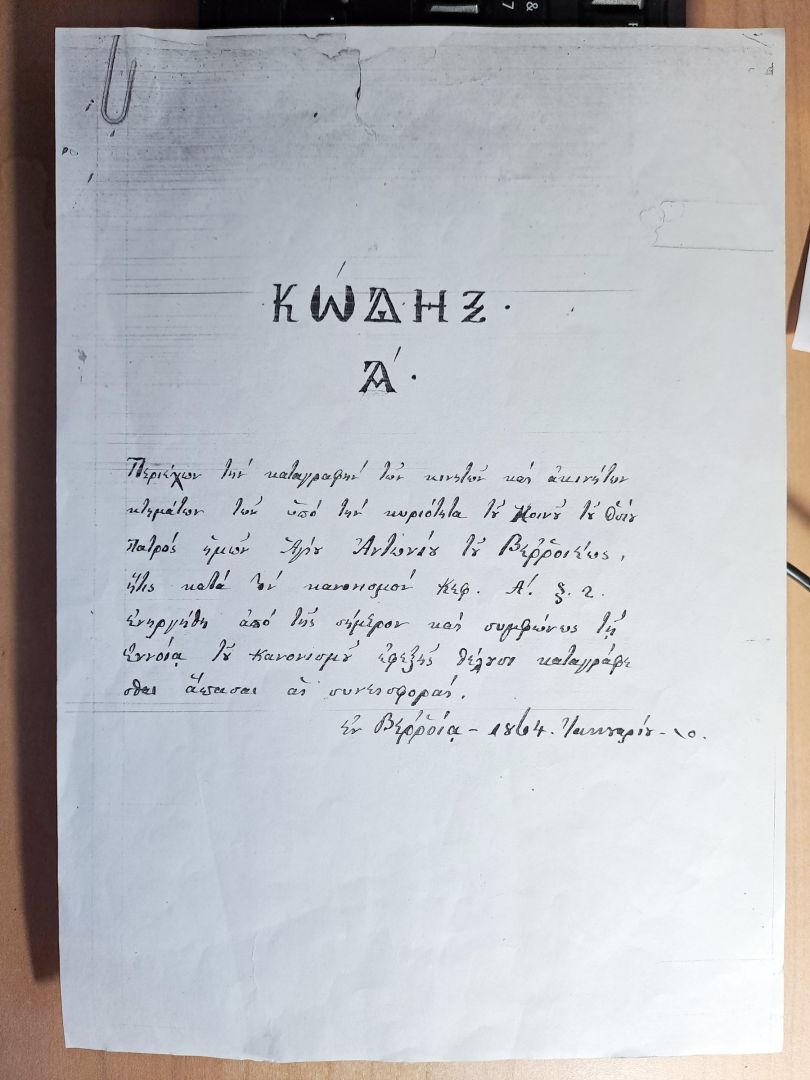 ΚΏΔΗΞ.
Ά.
Περιέχων τὴν καταγραφὴν τῶν κινητῶν καὶ ἀκινήτων
κτημάτων τῶν ὑπὸ τὴν κυριότητα τοῦ Κοινοῦ τοῦ Ὁσίου
Πατρὸς ἡμῶν Ἁγίου Ἀντωνίου τοῦ Βεῤῥοιέως,
ἥτις κατὰ τὸν κανονισμὸν Κεφ. Α΄. §. 2.
ἐνηργήθη ἀπὸ τῆς σήμερον καὶ συμφώνως τῇ
ἐννοίᾳ τοῦ Κανονισμοῦ ἐφεξῆς θέλουσι καταγράφε
σθαι ἅπασαι αἱ συνεισφοραί.
ἐν Βεῤῥοίᾳ - 1864. Ἰαννουαρίου -